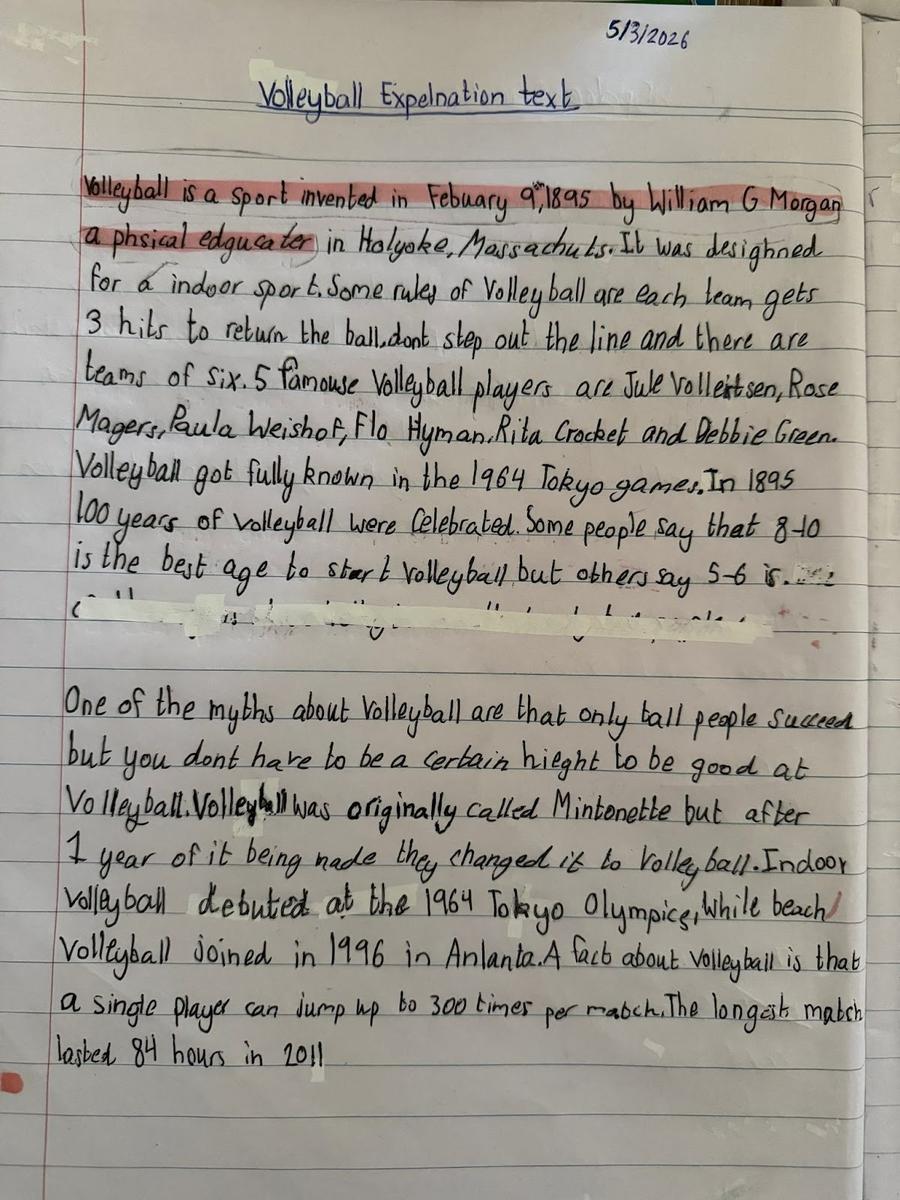 5/3/2026
Volleyball Expelnation text
Volleyball is a sport invented in Febuary 9th,1895 by William G Morgan
a phsical edgucater in Holyoke, Massachuts. It was desighned
for a indoor sport. Some rules of Volleyball are each team gets
3 hits to return the ball, dont step out the line and there are
teams of six. 5 famouse Volleyball players are Jule Volleitsen, Rose
Magers, Paula Weishof, Flo Hyman, Rita Crocket and Debbie Green.
Volleyball got fully known in the 1964 Tokyo games. In 1895
100 years of volleyball were Celebrated. Some people say that 8-10
is the best age to start Volleyball but others say 5-6 is.
One of the myths about Volleyball are that only tall people Succeed
but you dont have to be a certain hieght to be good at
Volleyball. Volleyball was originally called Mintonette but after
1 year of it being made they changed it to Volleyball. Indoor
Volleyball debuted at the 1964 Tokyo Olympics, While beach
Volleyball joined in 1996 in Anlanta. A fact about Volleyball is that
a single player can jump up to 300 times per match. The longest match
lasted 84 hours in 2011